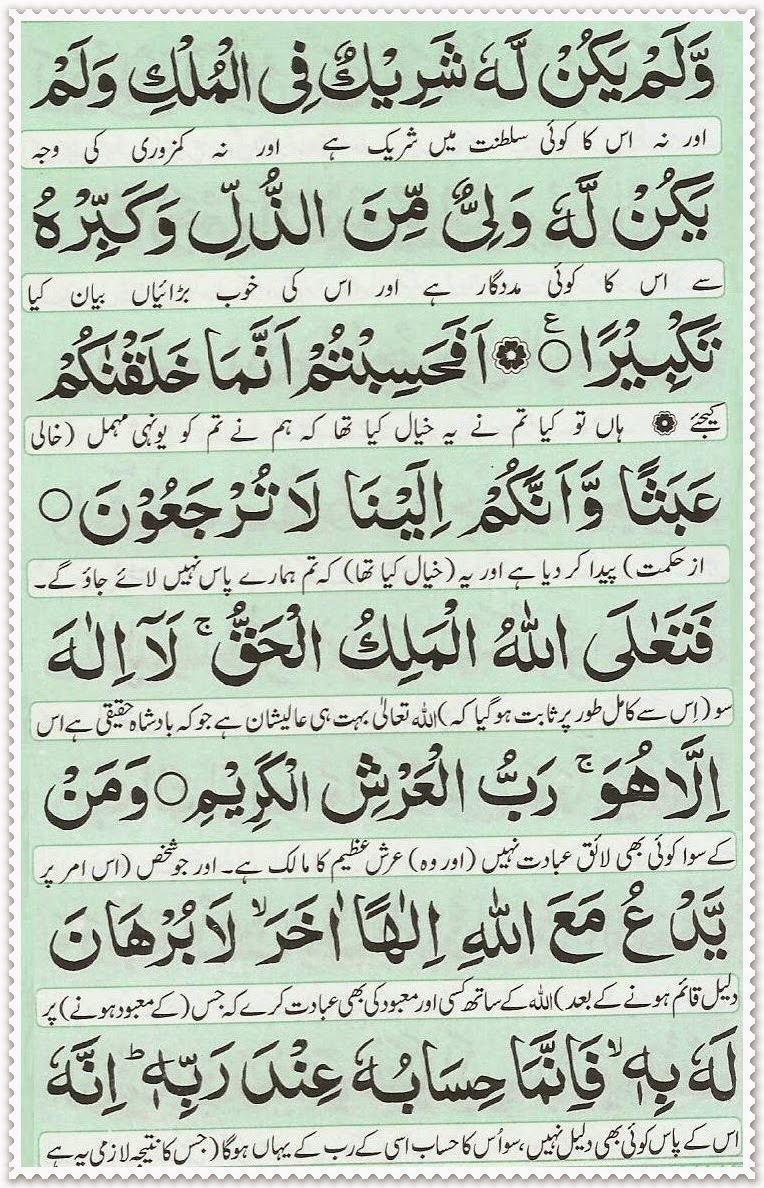 وَّلَمْ يَكُنْ لَّهٗ شَرِيْكٌ فِى الْمُلْكِ وَلَمْ
اور نہ اس کا کوئی سلطنت میں شریک ہے اور نہ کمزوری کی وجہ
يَكُنْ لَّهٗ وَلِىٌّ مِّنَ الذُّلِّ وَكَبِّرْهُ
سے اس کا کوئی مددگار ہے اور اس کی خوب بڑائیاں بیان کیا
تَكْبِيْرًا ○ ع اَفَحَسِبْتُمْ اَنَّمَا خَلَقْنٰكُمْ
کیجئے ہاں تو کیا تم نے یہ خیال کیا تھا کہ ہم نے تم کو یونہی مہمل (خالی
عَبَثًا وَّاَنَّكُمْ اِلَيْنَا لَا تُرْجَعُوْنَ ○
از حکمت) پیدا کر دیا ہے اور یہ (خیال کیا تھا) کہ تم ہمارے پاس نہیں لائے جاؤ گے۔
فَتَعٰلَى اللّٰهُ الْمَلِكُ الْحَقُّ ۚ لَآ اِلٰهَ
سو (اِس سے کامل طور پر ثابت ہوگیا کہ) اللہ تعالیٰ بہت ہی عالیشان ہے جو کہ بادشاہ حقیقی ہے اس
اِلَّا هُوَ ۚ رَبُّ الْعَرْشِ الْكَرِيْمِ ○ وَمَنْ
کے سوا کوئی بھی لائق عبادت نہیں (اور وہ) عرش عظیم کا مالک ہے۔ اور جو شخص (اس امر پر
يَّدْعُ مَعَ اللّٰهِ اِلٰهًا اٰخَرَ ۙ لَا بُرْهَانَ
دلیل قائم ہونے کے بعد) اللہ کے ساتھ کسی اور معبود کی بھی عبادت کرے کہ جس (کے معبود ہونے) پر
لَهٗ بِهٖ ۙ فَاِنَّمَا حِسَابُهٗ عِنْدَ رَبِّهٖ ؕ اِنَّهٗ
اس کے پاس کوئی بھی دلیل نہیں، سو اُس کا حساب اسی کے رب کے یہاں ہوگا (جس کا نتیجہ لازمی یہ ہے